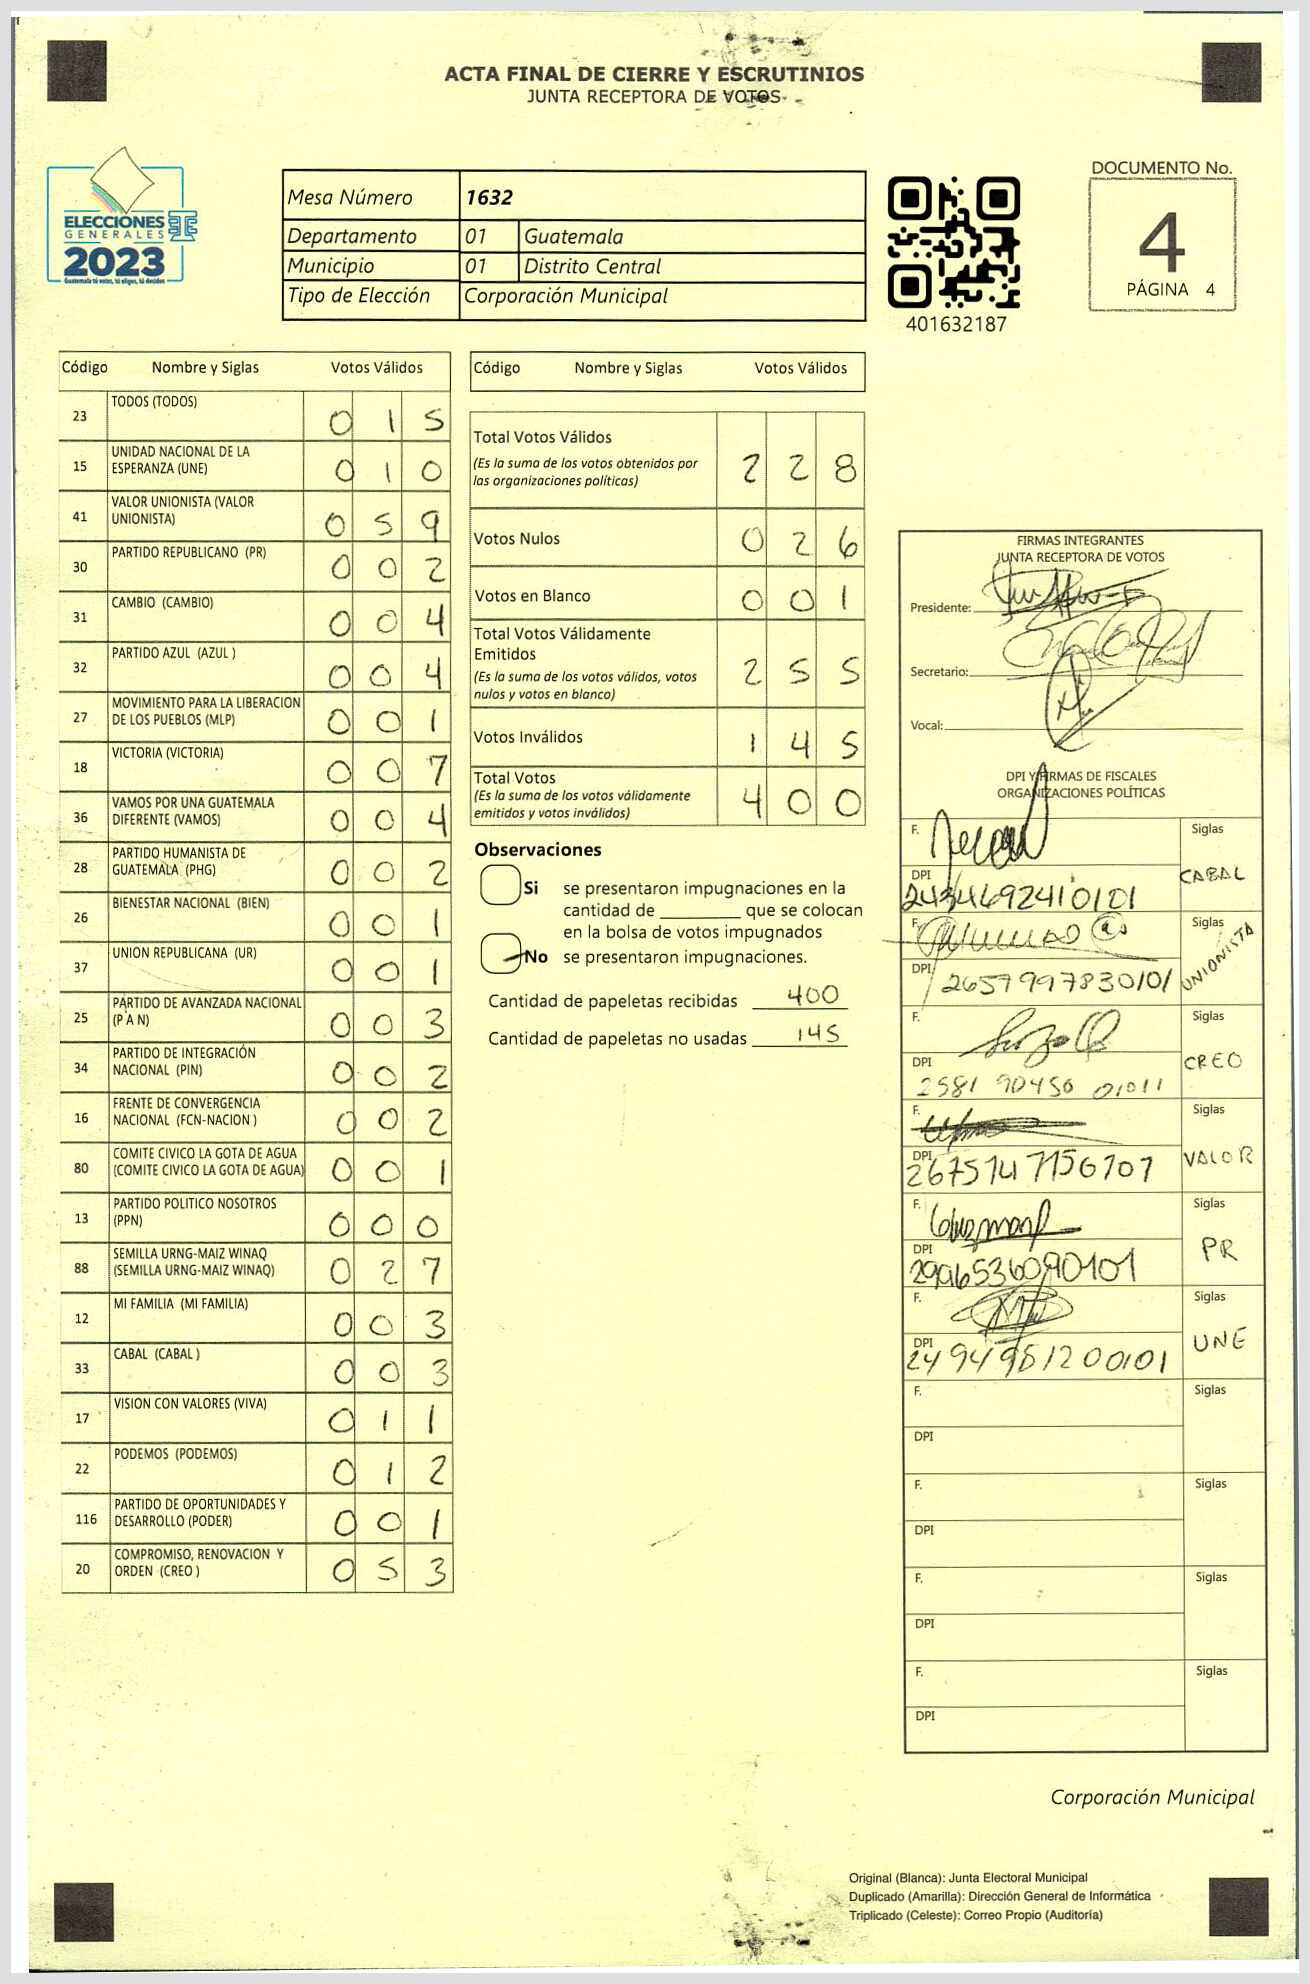 ACTA FINAL DE CIERRE Y ESCRUTINIOS
JUNTA RECEPTORA DE VOTOS
ELECCIONES
GENERALES
2023
Guatemala tú votas, tú eliges, tú decides
Mesa Número 1632
Departamento 01 Guatemala
Municipio 01 Distrito Central
Tipo de Elección Corporación Municipal
401632187
DOCUMENTO No.
4
PÁGINA 4
Código Nombre y Siglas Votos Válidos
23 TODOS (TODOS) 0 1 5
15 UNIDAD NACIONAL DE LA
ESPERANZA (UNE) 0 1 0
41 VALOR UNIONISTA (VALOR
UNIONISTA) 0 5 9
30 PARTIDO REPUBLICANO (PR) 0 0 2
31 CAMBIO (CAMBIO) 0 0 4
32 PARTIDO AZUL (AZUL ) 0 0 4
27 MOVIMIENTO PARA LA LIBERACION
DE LOS PUEBLOS (MLP) 0 0 1
18 VICTORIA (VICTORIA) 0 0 7
36 VAMOS POR UNA GUATEMALA
DIFERENTE (VAMOS) 0 0 4
28 PARTIDO HUMANISTA DE
GUATEMALA (PHG) 0 0 2
26 BIENESTAR NACIONAL (BIEN) 0 0 1
37 UNION REPUBLICANA (UR) 0 0 1
25 PARTIDO DE AVANZADA NACIONAL
(P A N) 0 0 3
34 PARTIDO DE INTEGRACIÓN
NACIONAL (PIN) 0 0 2
16 FRENTE DE CONVERGENCIA
NACIONAL (FCN-NACION ) 0 0 2
80 COMITE CIVICO LA GOTA DE AGUA
(COMITE CIVICO LA GOTA DE AGUA) 0 0 1
13 PARTIDO POLITICO NOSOTROS
(PPN) 0 0 0
88 SEMILLA URNG-MAIZ WINAQ
(SEMILLA URNG-MAIZ WINAQ) 0 2 7
12 MI FAMILIA (MI FAMILIA) 0 0 3
33 CABAL (CABAL ) 0 0 3
17 VISION CON VALORES (VIVA) 0 1 1
22 PODEMOS (PODEMOS) 0 1 2
116 PARTIDO DE OPORTUNIDADES Y
DESARROLLO (PODER) 0 0 1
20 COMPROMISO, RENOVACION Y
ORDEN (CREO ) 0 5 3
Código Nombre y Siglas Votos Válidos
Total Votos Válidos
(Es la suma de los votos obtenidos por
las organizaciones políticas) 2 2 8
Votos Nulos 0 2 6
Votos en Blanco 0 0 1
Total Votos Válidamente
Emitidos
(Es la suma de los votos válidos, votos
nulos y votos en blanco) 2 5 5
Votos Inválidos 1 4 5
Total Votos
(Es la suma de los votos válidamente
emitidos y votos inválidos) 4 0 0
Observaciones
Si se presentaron impugnaciones en la
cantidad de ________ que se colocan
en la bolsa de votos impugnados
No se presentaron impugnaciones.
Cantidad de papeletas recibidas 400
Cantidad de papeletas no usadas 145
FIRMAS INTEGRANTES
JUNTA RECEPTORA DE VOTOS
Presidente:
Secretario:
Vocal:
DPI Y FIRMAS DE FISCALES
ORGANIZACIONES POLÍTICAS
F. Siglas
CABAL
DPI
2434692410101
F. Siglas
UNIONISTA
DPI
2657997830101
F. Siglas
CREO
DPI
2581 90450 01011
F. Siglas
VALOR
DPI
F. Siglas
PR
DPI
2996536090101
F. Siglas
UNE
DPI
F. Siglas
DPI
F. Siglas
DPI
F. Siglas
DPI
F. Siglas
DPI
Corporación Municipal
Original (Blanca): Junta Electoral Municipal
Duplicado (Amarilla): Dirección General de Informática
Triplicado (Celeste): Correo Propio (Auditoría)